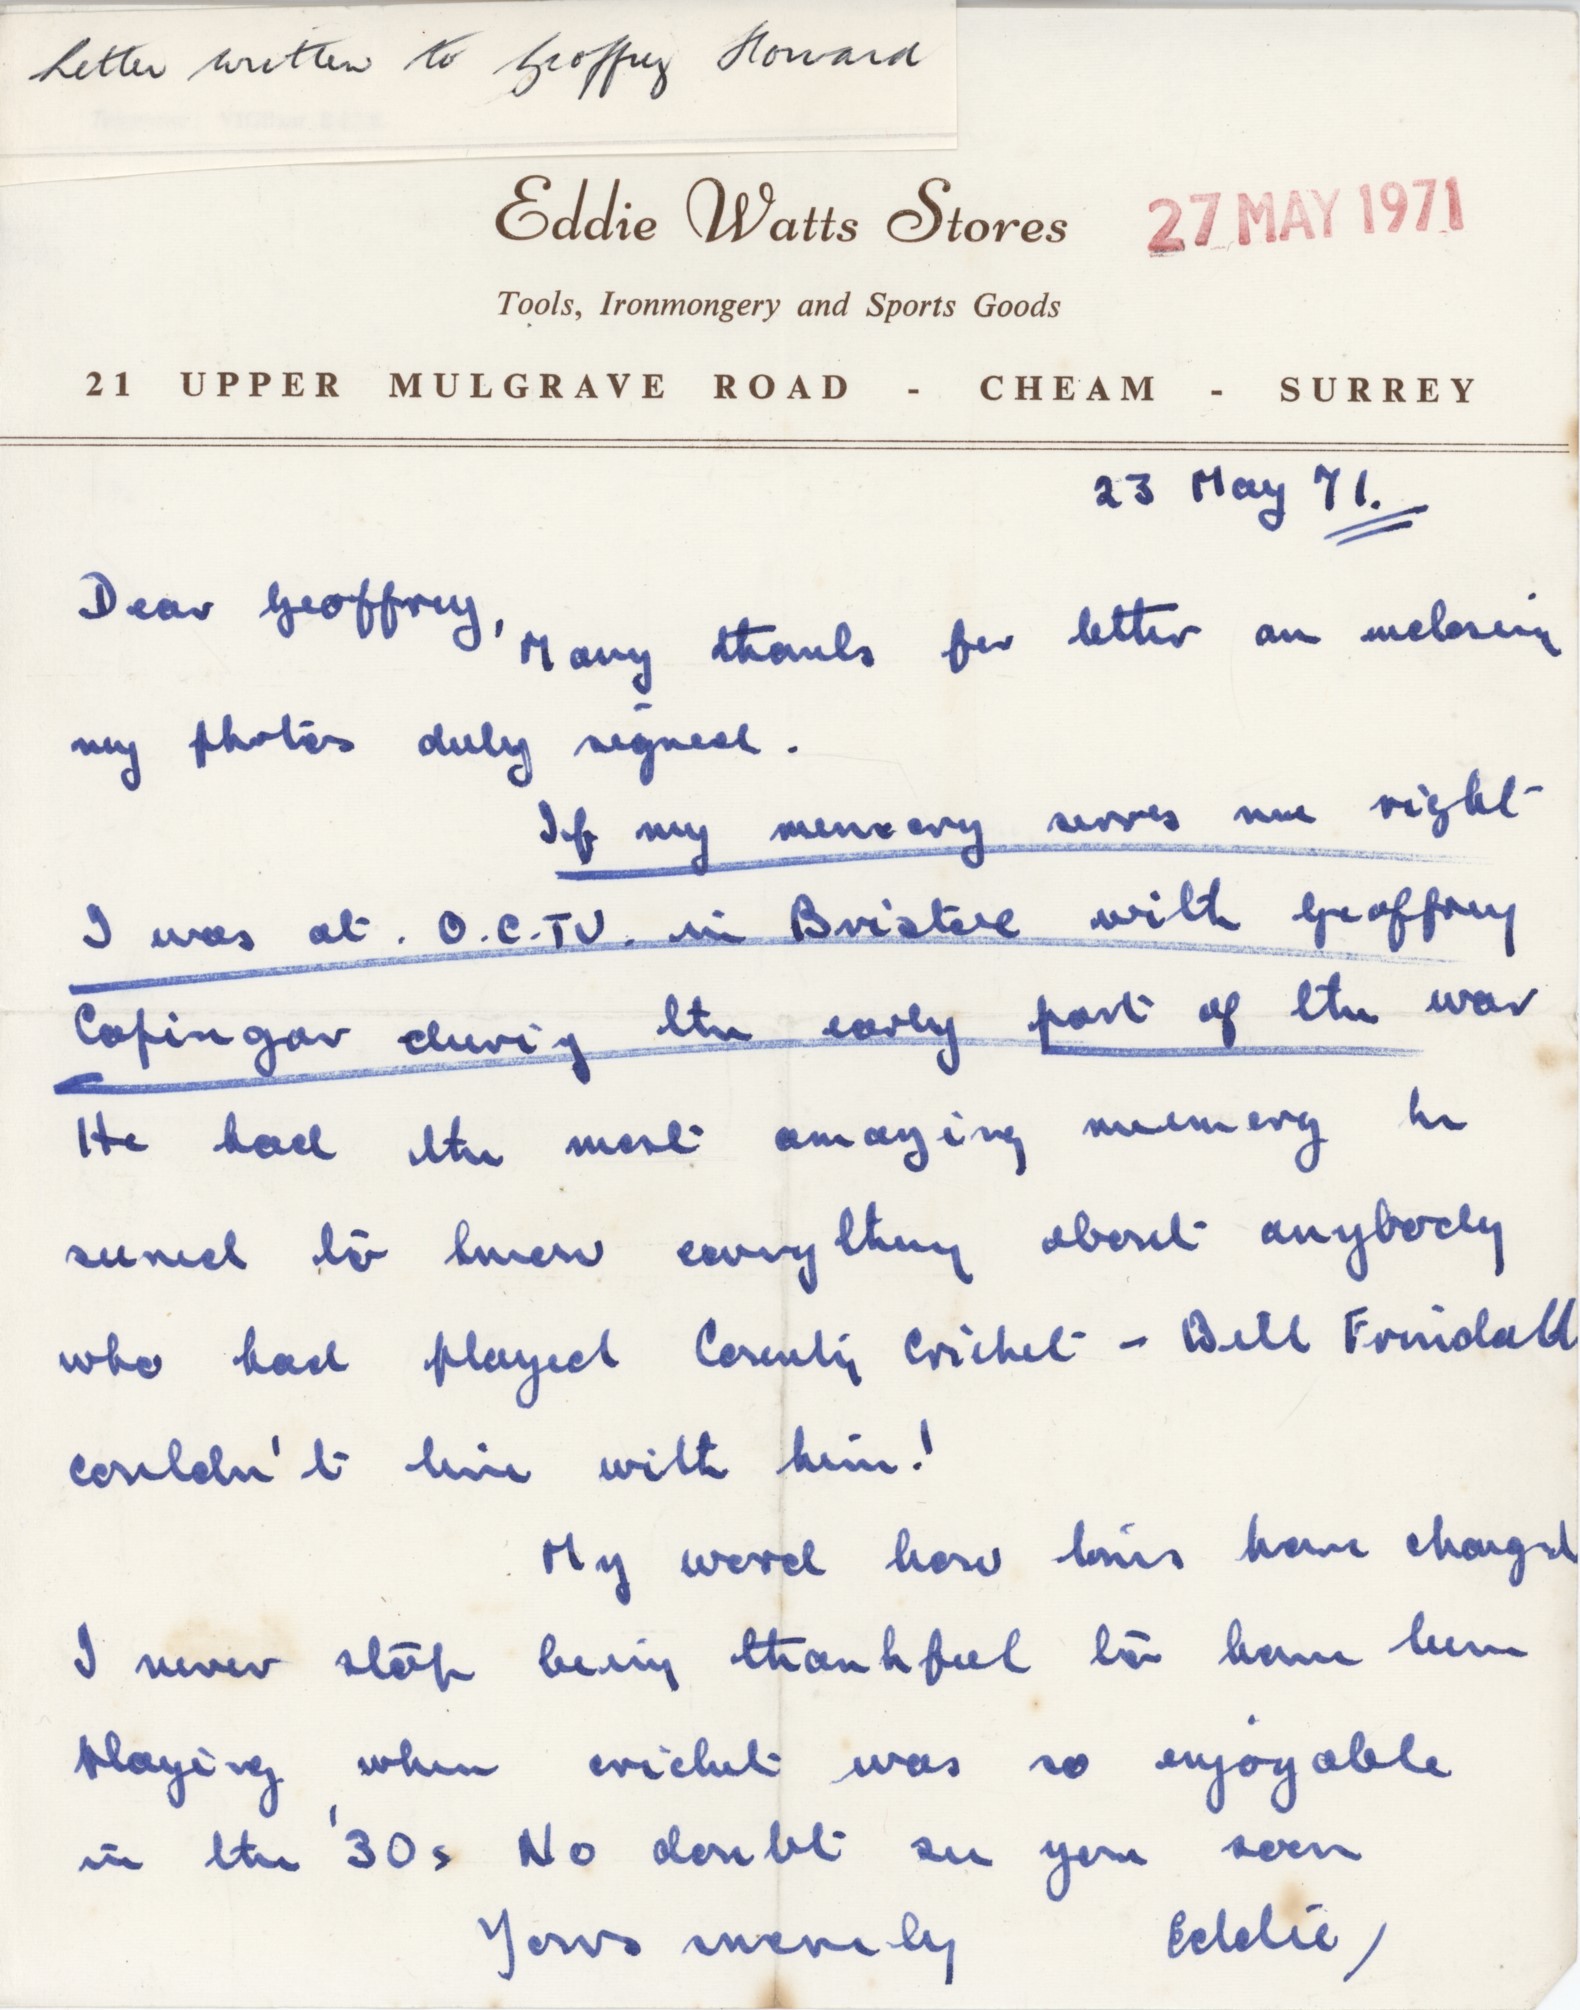 Letter written to Geoffrey Howard
Eddie Watts Stores
27 MAY 1971
Tools, Ironmongery and Sports Goods
21 UPPER MULGRAVE ROAD - CHEAM - SURREY
23 May 71.
Dear Geoffrey,
Many thanks for letter an inclosing
my photos duly signed.
If my memory serves me right
I was at. O.C.T.U. in Bristol with Geoffrey
Copingar during the early part of the war
He had the most amazing memory he
seemed to know everything about anybody
who had played County Cricket - Bill Frindall
couldn't live with him!
My word how times have changed
I never stop being thankful to have been
playing when cricket was so enjoyable
in the '30s No doubt see you soon
Yours sincerely Eddie